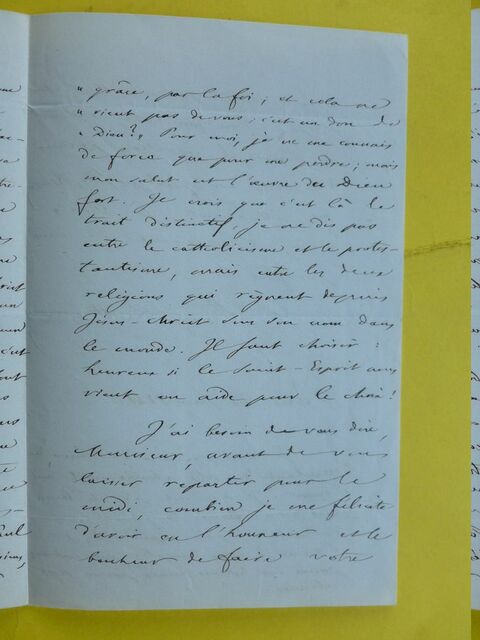 « grâce, par la foi ; et cela ne
« vient pas de vous, c'est un don de
« Dieu ? » Pour moi, je ne me connais
de force que pour me perdre ; mais
mon salut est l'œuvre du Dieu
fort. Je crois que c'est là le
trait distinctif, je ne dis pas
entre le catholicisme et le protes-
tantisme, mais entre les deux
religions qui règnent depuis
Jésus-Christ sous son nom dans
le monde. Il faut choisir :
heureux si le Saint-Esprit nous
vient en aide pour le choix !
J'ai besoin de vous dire,
Monsieur, avant de vous
laisser repartir pour le
midi, combien je me félicite
d'avoir eu l'honneur et le
bonheur de faire votre